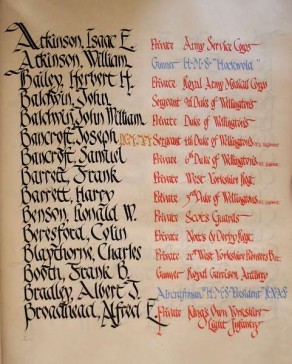 Atkinson, Isaac E. Private Army Service Corps
Atkinson, William Gunner H·M·S "
Bailey, Herbert H. Private Royal Army Medical Corps
Baldwin, John Sergeant Duke of Wellington's
Baldwin, John William Private Duke of Wellington's
Bancroft, Joseph Sergeant 4th Duke of Wellington's
Bancroft, Samuel Private Duke of Wellington's
Barrett, Frank Private West Yorkshire Regt.
Barrett, Harry Private Duke of Wellington's
Benson, Ronald W. Private Scots Guards
Beresford, Colin Private Notts & Derby Regt.
Blaythorne, Charles Private West Yorkshire Pioneers Batt.
Booth, Frank B. Gunner Royal Garrison Artillery
Bradley, Albert J. Aircraftman H·M·S "President"
Broadhead, Alfred E. Private King's Own Yorkshire
Light Infantry